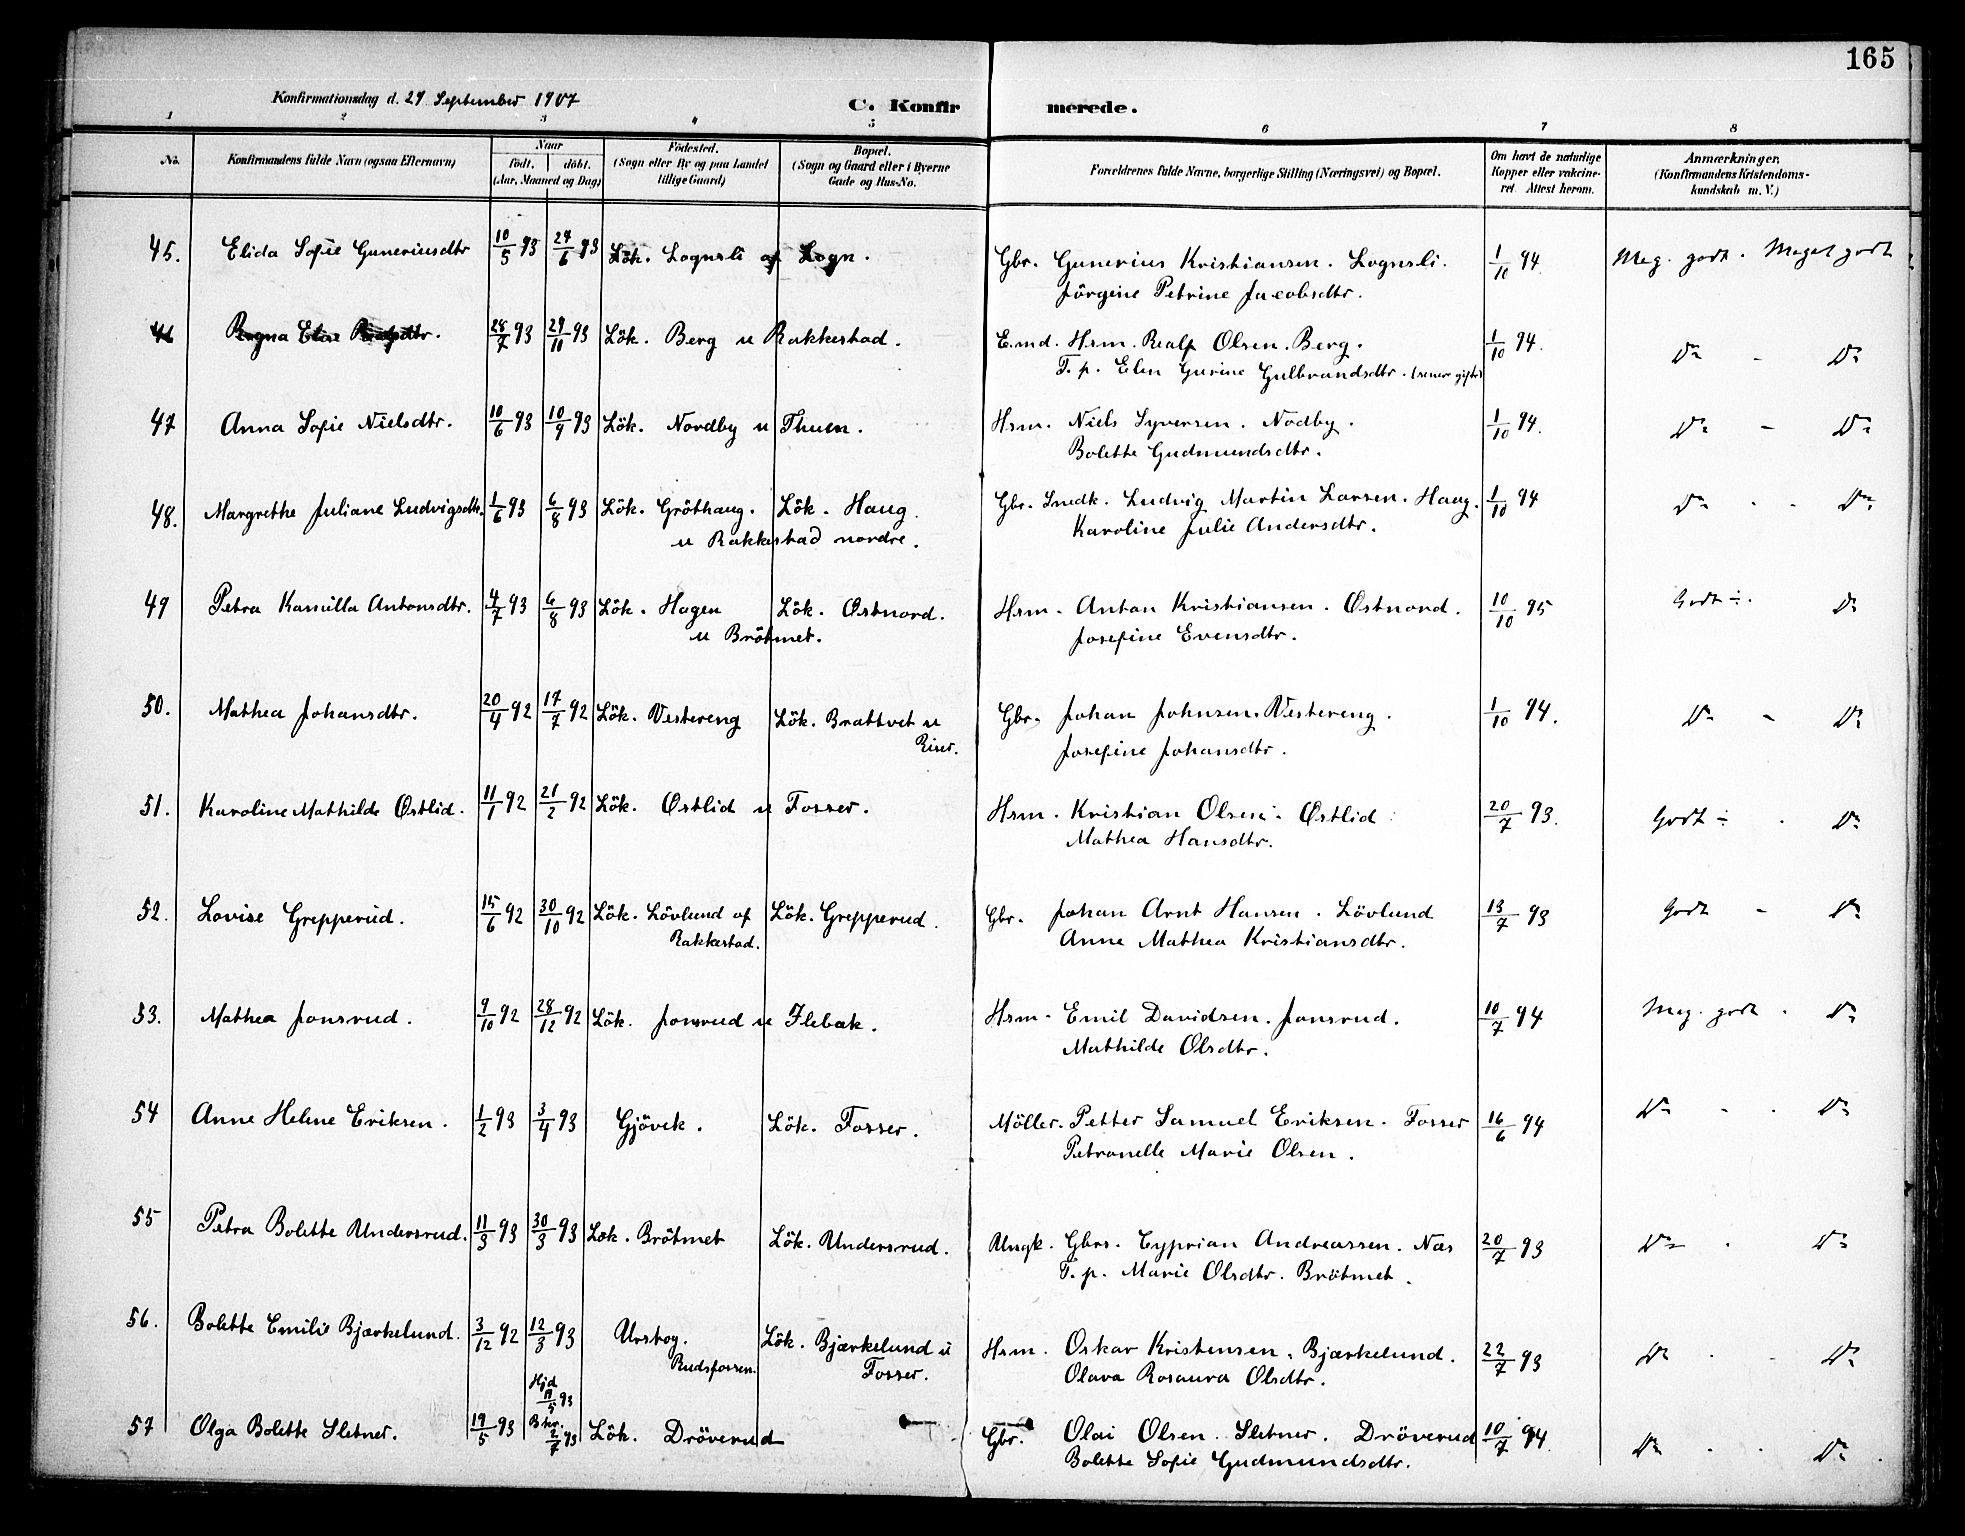 165
Konfirmationsdag d. 29 September 1907 C. Konfir merede.
1 2 3 4 5 6 7 8
No. Konfirmandens fulde Navn (ogsaa Efternavn) Naar født. døbt. (Aar, Maaned og Dag) Fødested. (Sogn eller By og paa Landet tillige Gaard) Bopæl. (Sogn og Gaard eller i Byerne Gade og Hus-No. Forældrenes fulde Navne, borgerlige Stilling (Næringsvei) og Bopæl. Om havt de naturlige Kopper eller vakcineret. Attest herom. Anmærkninger. (Konfirmandens Kristendomskundskab m. V.)
45. Elida Sofie Guneriusdtr 10/5 93 24/6 93 Lök. Lognsli af Logn. Gbr. Gunerius Kristiansen. Lognsli. 1/10 94. Meg. godt. Meget godt
Jörgine Petrine Jacobsdtr.
46 Ragna Elise Realfsdtr. 28/7 93 29/11 93 Lök. Berg u Rakkestad. E.md. Hsm. Realf Olsen. Berg. 1/10 94. Do - Do
F. p. Elen Gurine Gulbrandsdtr. (senere gifte)
47 Anna Sofie Nielsdtr. 10/6 93 10/9 93 Lök. Nordby u Thuen. Hsm. Niels Syversen. Nodby. 1/10 94. Do - Do
Bolette Gudmundsdtr.
48. Margrethe Juliane Ludvigsdtr. 1/6 93 6/8 93 Lök. Gröthaug. Lök. Haug. Gbr. Smedk. Ludvig Martin Larsen. Haug. 1/10 94 Do - - Do
u Rakkestad nordre. Karoline Julie Andersdtr.
49 Petra Kamilla Antonsdtr. 4/7 93 6/8 93 Lök. Hagen Lök. Østnord. Hsm. Anton Kristiansen. Østnord. 10/10 95 Godt ÷. Do
u Brötmet. Josefine Evensdtr.
50. Mathea Johansdtr. 20/4 92 17/7 92 Lök. Vestereng Lök. Brattvet u Gbr. Johan Johnsen. Vestereng. 1/10 94. Do - Do
Riser. Josefine Johansdtr.
51. Karoline Mathilde Østlid. 11/1 92 21/2 92 Lök. Østlid u Fosser. Hsm. Kristian Olsen. Østlid 20/7 93. Godt ÷ . Do
Mathea Hansdtr.
52. Lovise Grepperud. 15/6 92 30/10 92 Lök. Lövlund af Lök. Grepperud. Gbr. Johan Arnt Hansen. Lövlund 13/7 93 Godt - Do
Rakkestad. Anne Mathea Kristiansdtr.
53. Mathea Jonsrud. 9/10 92 28/12 92 Lök. Jonsrud u Flebæk. Hsm. Emil Davidsen. Jonsrud. 10/7 94 Meg. godt. Do
Mathilde Olsdtr.
54 Anne Helene Eriksen. 1/2 93 3/4 93 Gjövik. Lök. Fosser. Möller. Petter Samuel Eriksen. Fosser 16/6 94 Do - . Do
Petronelle Marie Olsen.
55 Petra Bolette Undersrud. 11/3 93 30/3 93 Løk. Brötmet Lök. Undersrud. Ungk. Gbrs. Cyprian Andreassen. Næs 20/7 93 Do . Do
F. p. Marie Olsdtr. Brötmet.
56. Bolette Emilie Bjærkelund. 3/12 92 12/3 93 Urskog. Lök. Bjærkelund u Hsm. Oskar Kristensen. Bjærkelund. 22/7 93 Do . - Do
Rudsfossen. Fosser. Olava Rosaura Olsdtr.
57 Olga Bolette Sletner. 19/5 93 Hjd 19/5 93 Bkr. 2/7 93 Lök. Dröverud Gbr. Olai Olsen Sletner. Dröverud 10/7 94. Do . . Do
Bolette Sofie Gudmundsdtr.